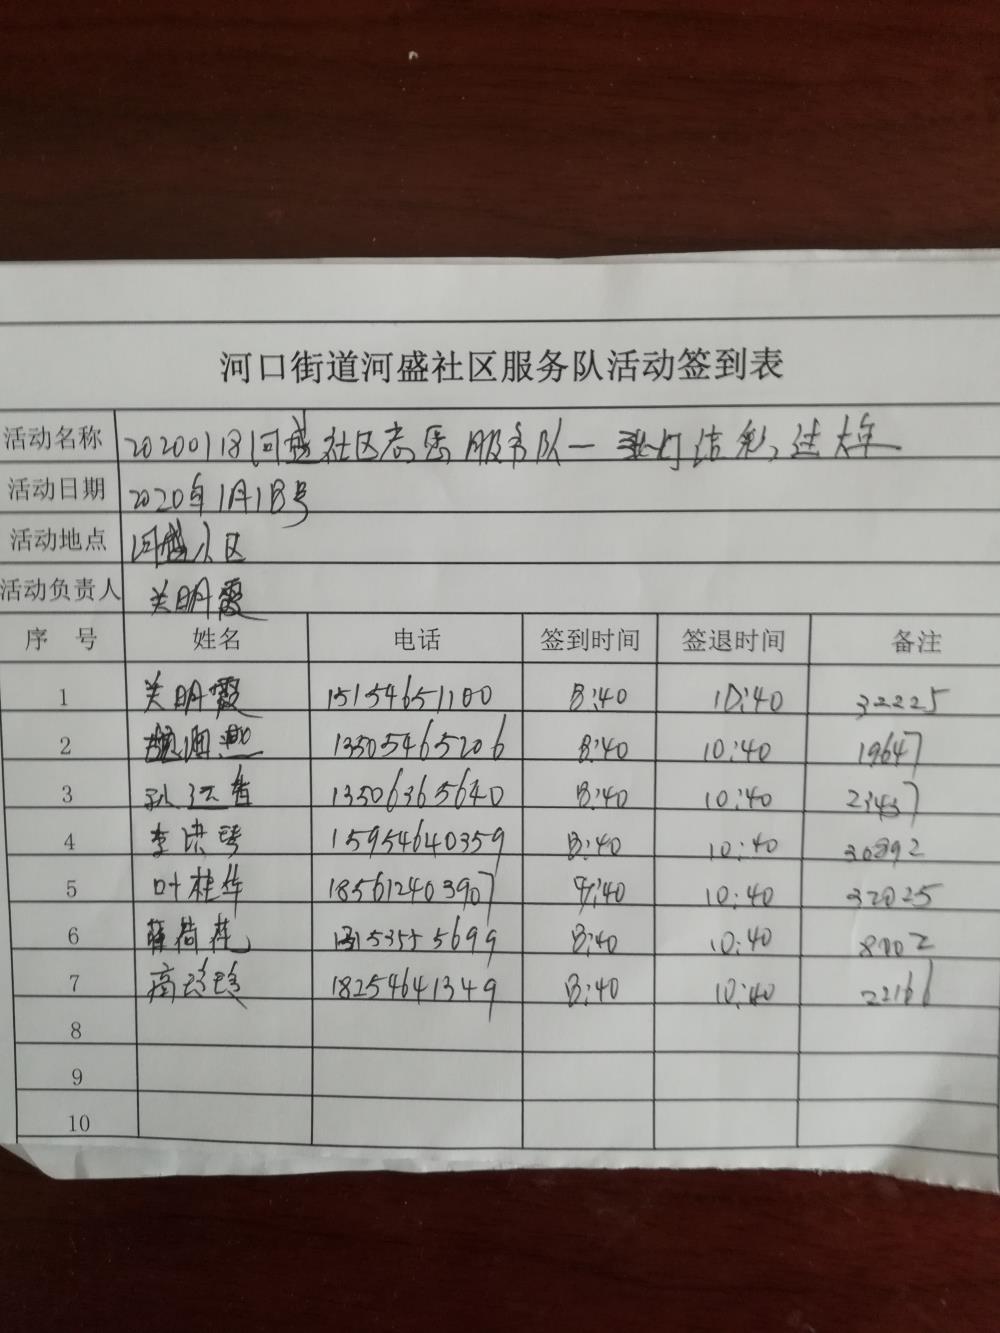 河口街道河盛社区服务队活动签到表
活动名称 20200118河盛社区志愿服务队—张灯结彩,过大年
活动日期 2020年1月18号
活动地点 河盛小区
活动负责人 关明霞
序 号 姓名 电话 签到时间 签退时间 备注
1 关明霞 15154651100 8:40 10:40 32225
2 13505465206 8:40 10:40 19647
3 孙 香 13506365640 8:40 10:40 21437
4 李洪琴 15954640359 8:40 10:40 30892
5 叶桂华 185612403907 :40 10:40 32025
6 薛荷花 5355 5699 8:40 10:40 8002
7 高珍珍 18254641349 8:40 10:40 22166
8
9
10